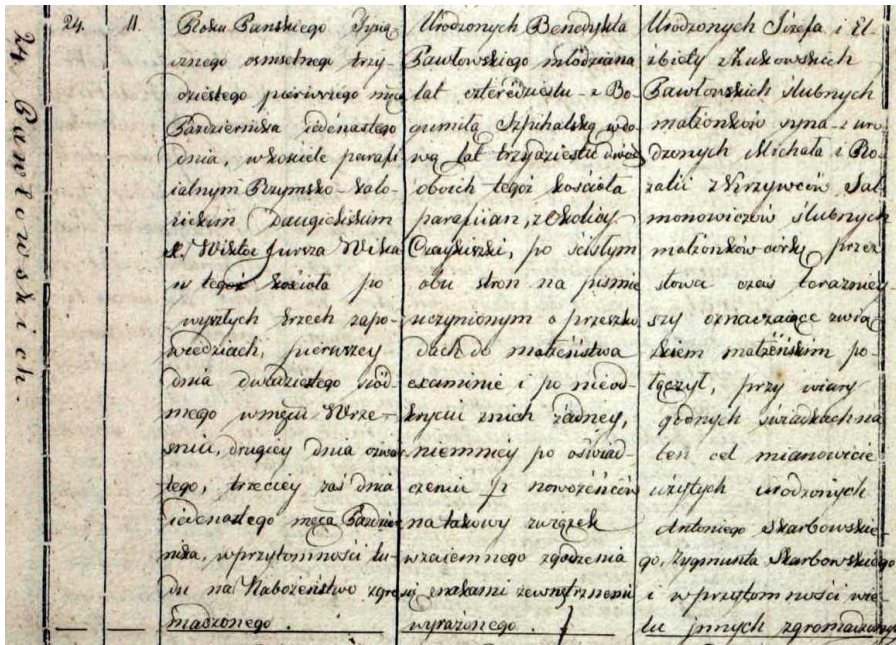 24. Pawłowskich.
24.
11.
Roku Panskiego Tysią-
cznego osmsetnego trzy-
dziestego pierwszego mca
Pazdziernika iedenastego
dnia, w kosciele parafi
ialnym Rzymsko-kato-
lickim Daugieliskim
X. Wiktor Jursza Wika
w tegoż kościoła po
wyszłych trzech zapo-
wiedziach, pierwszey
dnia dwudziestego siód-
mego w mcu Wrze-
sniu, drugiey dnia czwar
tego, trzeciey zaś dnia
iedenastego mca Pazdzier
nika, w przytomności lu-
du na Nabożeństwo zgro
madzonego.
Urodzonych Benedykta
Pawłowskiego młodziana
lat czterédziestu - z Bo-
gumiłą Szpihalską wdo-
wą lat trzydziestu dwóch
oboich tegoż kościoła
parafiian, z Okolicy
Czaykiszki, po ścisłym
obu stron na pismie
uczynionym o przeszko
dach do małżeństwa
examinie i po nieod-
kryciu znich żadney,
niemniey po oświad-
czeniu p nowożeńców
na takowy związek
wzaiemnego zgodzenia
się znakami zewnętrznemi
wyrażonego.
Urodzonych Józefa i El-
żbiety z Żukowskich
Pawłowskich ślubnych
małżonków syna - z uro
dzonych Michała i Ro-
zalii z Krzywców Sal
monowiczów ślubnych
małżonków córką przez
słowa czas teraźniey-
szy oznaczaiące zwią
zkiem małżeńskim po-
łączył, przy wiary
godnych świadkach na
ten cel mianowicie
użytych urodzonych
Antoniego Skarbowskie
go, Zygmunta Skarbowskiego
i w przytomności wie-
lu innych zgromadzonych